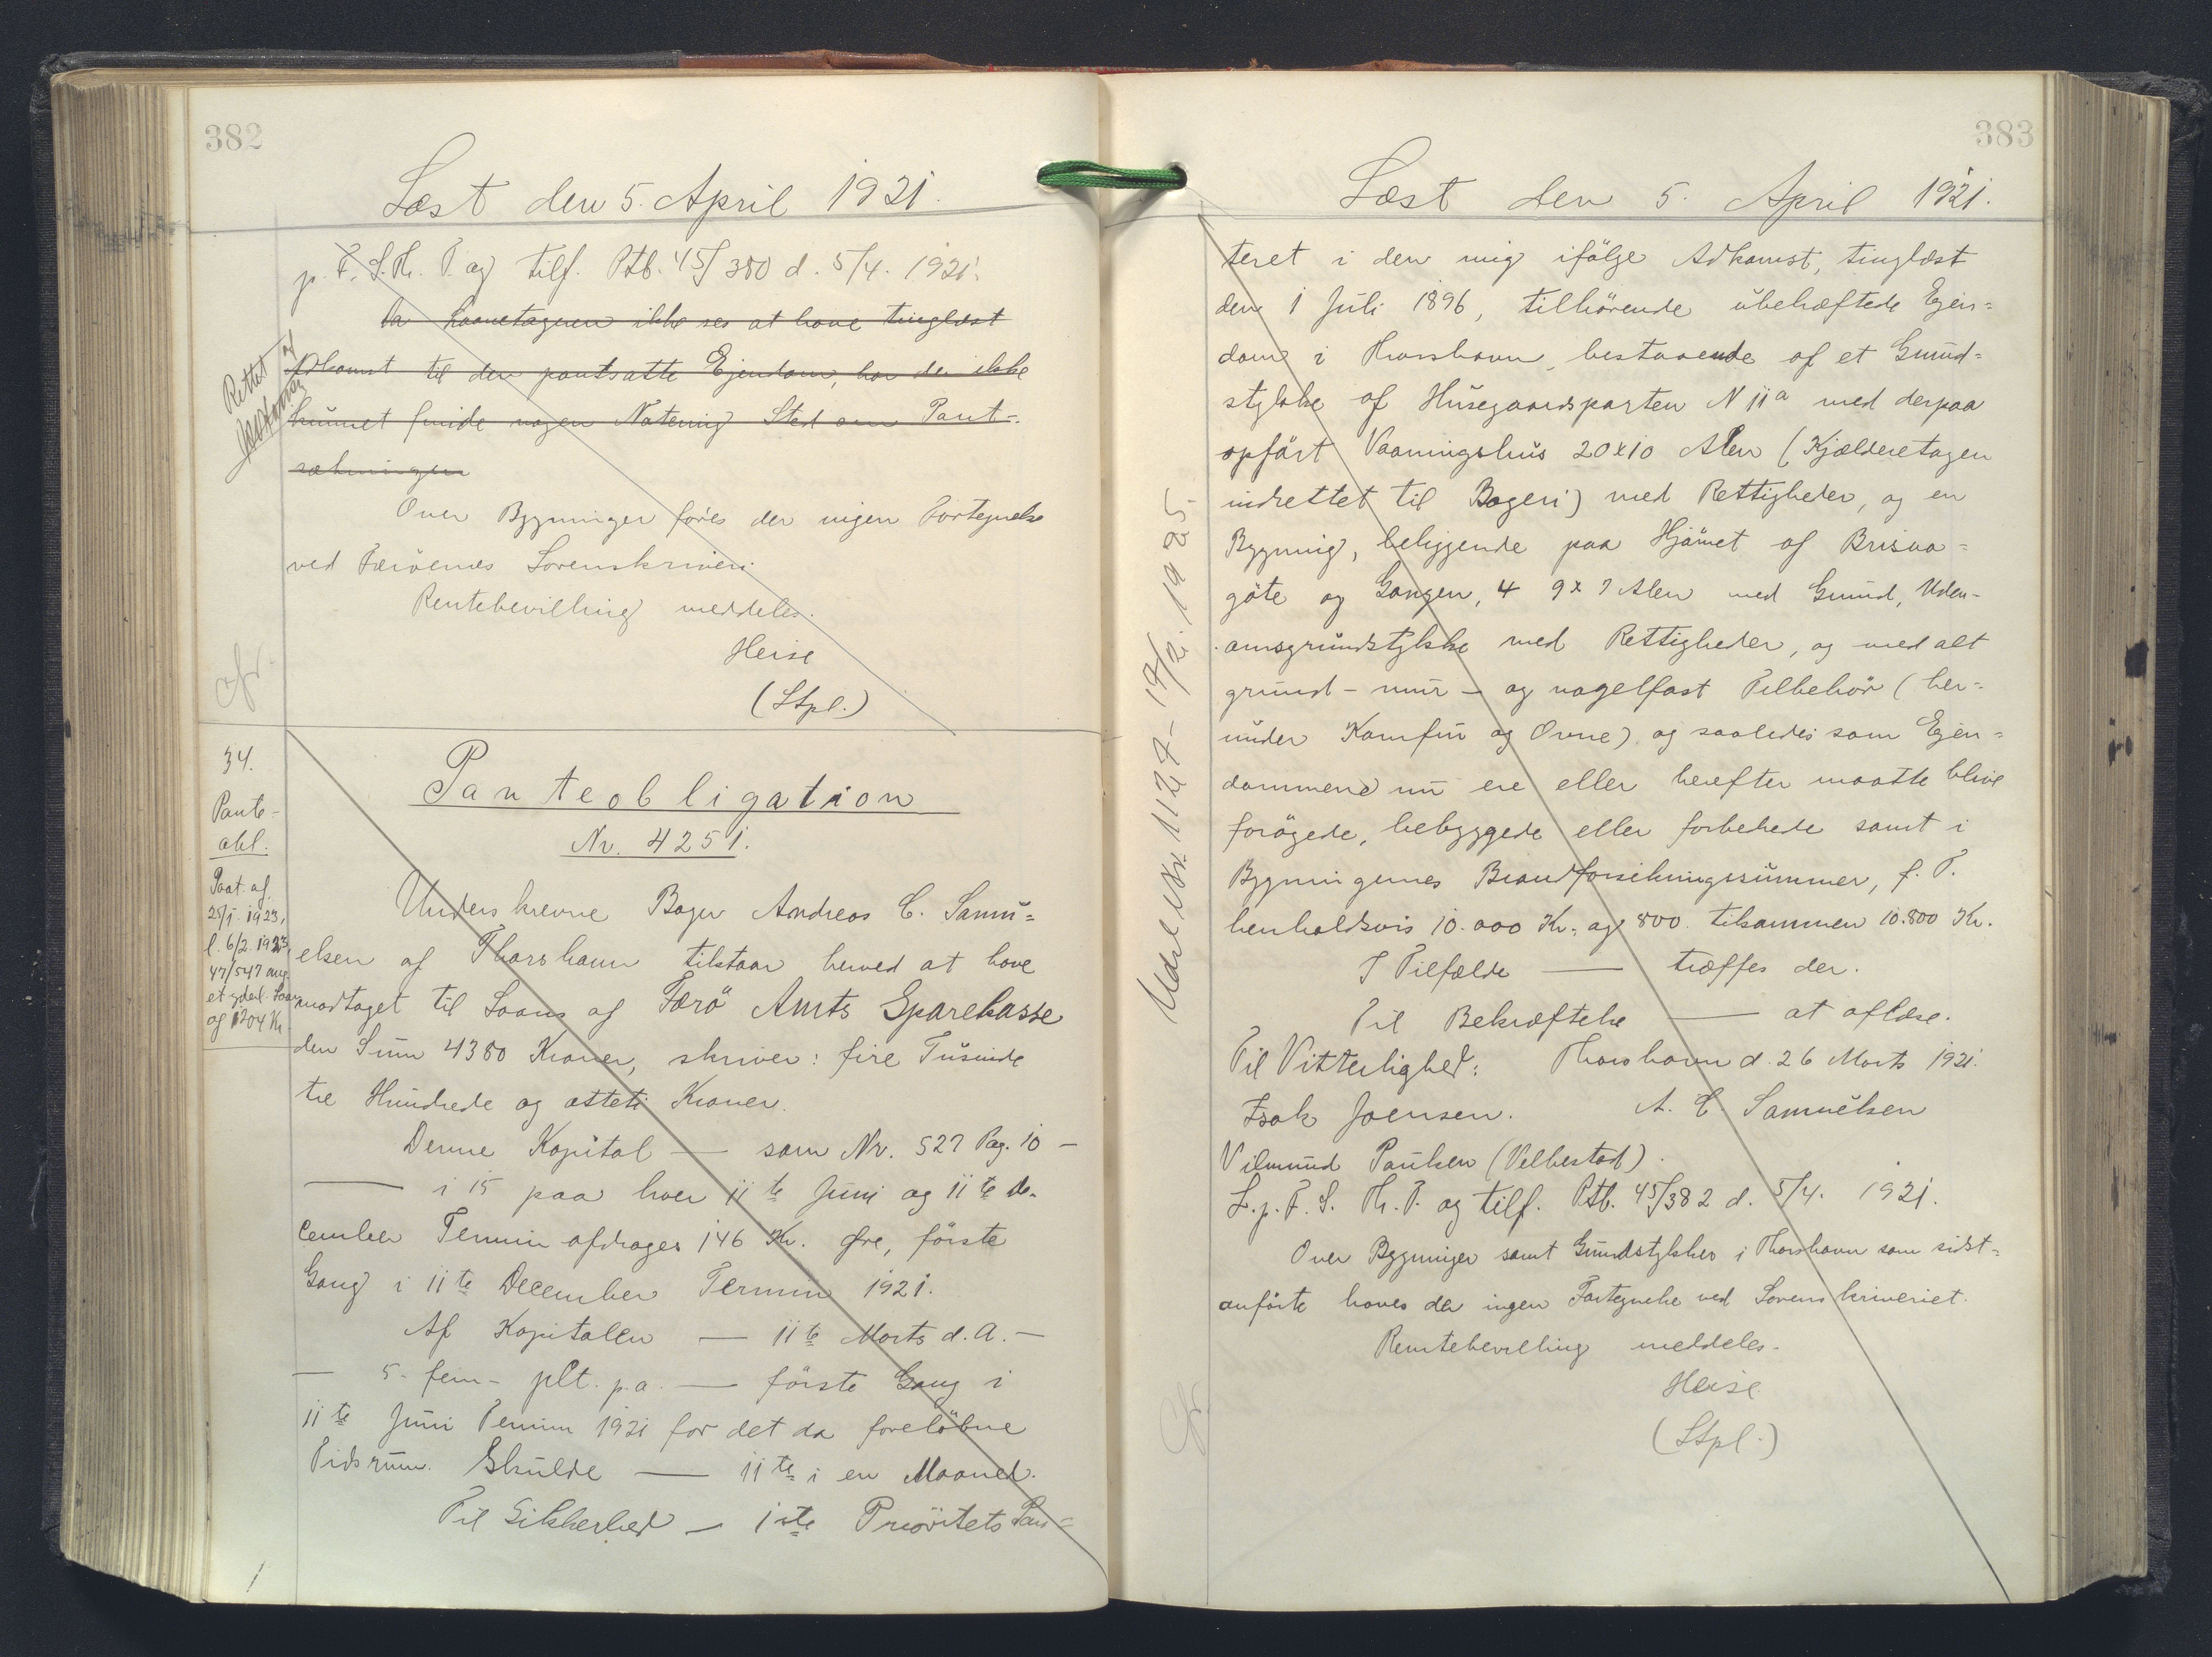 382
Læst den 5. April 1921.
p. F. S. Th. P. og tilf. Ptb. 45/380 d. 5/4. 1921.
Da Laanetageren ikke ses at have tinglæst
Adkomst til den pantsatte Ejendom, har der ikke
kunnet finde nogen Notering Sted om Pant-
sætningen
Rettet af
Over Bygninger føres der ingen Fortegnelse
ved Færöernes Sorenskriveri.
Rentebevilling meddeles.
Heise
(Stpl.)
cfr.
34.
Pante-
obl.
Paat. af
25/1. 1923,
l. 6/2. 1923,
47/547 ang.
et yderl. Laan
af 1204 Kr.
Panteobligation
Nr. 4251.
Underskrevne Bager Andreas C. Samu=
elsen af Thorshavn tilstaar herved at have
modtaget til Laans af Færö Amts Sparekasse
den Sum 4380 Kroner, skriver: fire Tusinde
tre Hundrede og otteti Kroner.
Denne Kapital — som Nr. 527 Pag. 10 —
— i 15 paa hver 11te Juni og 11te De-
cember Termin afdrages 146 Kr. Øre, förste
Gang i 11te December Termin 1921.
Af Kapitalen — 11te Marts d. A. —
— 5 - fem - pCt. p.a. — förste Gang i
11te Juni Termin 1921 for det da forelöbne
Tidsrum. Skulde — 11te i en Maaned.
Til Sikkerhed — 1ste Prioritets Pan=
383
Læst den 5. April 1921.
teret i den mig ifölge Adkomst, tinglæst
den 1 Juli 1896, tilhörende ubehæftede Ejen=
dom i Thorshavn, bestaaende af et Grund=
stykke af Husegaardsparten N 11a med derpaa
opfört Vaaningshus 20x10 Alen (Kjælderetagen
indrettet til Bageri) med Rettigheder, og en
Bygning, beliggende paa Hjörnet af Brisaa=
göte og Gongen, 4 9x7 Alen med Grund, Uden-
omsgrundstykke med Rettigheder, og med alt
grund- mur- og nagelfast Tilbehör (her=
under Komfur og Ovne) og saaledes som Ejen=
dommene nu ere eller herefter maatte blive
forögede, bebyggede eller forbedrede samt i
Bygningernes Brandforsikringssummer, f. T.
henholdsvis 10.000 Kr. og 800 tilsammen 10.800 Kr.
I Tilfælde — træffes der.
Til Bekræftelse — at aflæse.
Til Vitterlighed: Thorshavn d. 26 Marts 1921.
Isak Joensen. A. C. Samuelsen
Vilmund Paulsen (Velbestad).
L. p. F. S. Th. P. og tilf. Ptb. 45/382 d. 5/4. 1921.
Over Bygninger samt Grundstykker i Thorshavn som sidst=
anförte haves der ingen Fortegnelse ved Sorenskriveriet.
Rentebevilling meddeles.
Heise
(Stpl.)
Udsl. Nr. 1127 - 17/2. 1925.
Cfr.